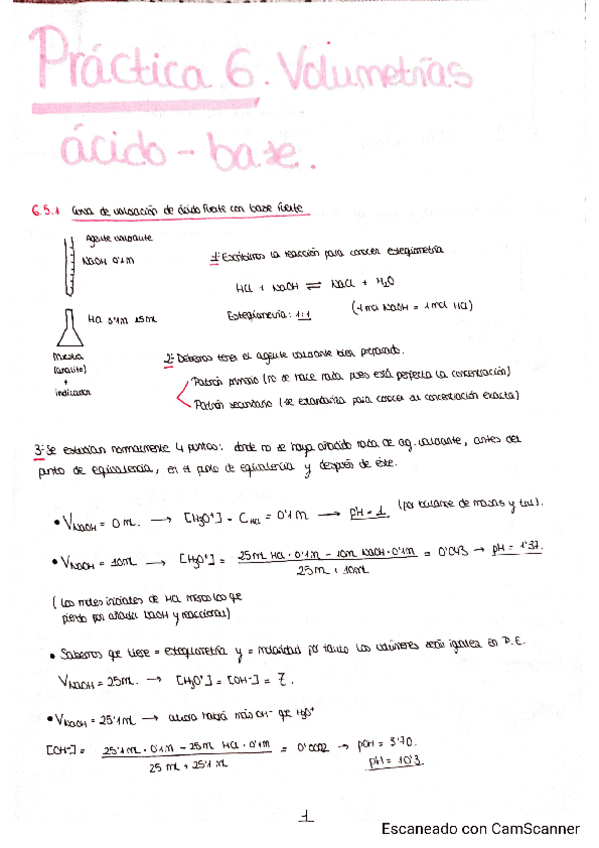 Práctica 6. Volumetrías
ácido - base.
6.5.1 Curva de valoración de ácido fuerte con base fuerte.
Agente valorante
NaOH 0'1M
1º Escribimos la reacción para conocer estequiometría
HCl + NaOH ⇌ NaCl + H₂O
Estequiometría: 1:1 (1 mol NaOH = 1 mol HCl)
HCl 0'1M 25mL
Muestra
(analito)
+
indicador
2º Debemos tener el agente valorante bien preparado.
Patrón primario (no se hace nada pues está perfecta la concentración)
Patrón secundario (se estandariza para conocer su concentración exacta)
3º Se estudian normalmente 4 puntos: donde no se haya añadido nada de ag. valorante, antes del
punto de equivalencia, en el punto de equivalencia y después de éste.
• V NaOH = 0 mL. → [H₃O⁺] = C HCl = 0'1M → pH = 1 (por balance de masas y tal).
• V NaOH = 10mL → [H₃O⁺] = 25mL HCl · 0'1M - 10mL NaOH · 0'1M = 0'043 → pH = 1'37.
25mL + 10mL
(Los moles iniciales de HCl menos los que
pierdo por añadir NaOH y reaccionar)
• Sabemos que tiene = estequiometría y = molaridad por tanto los volúmenes serán iguales en P.E.
V NaOH = 25mL. → [H₃O⁺] = [OH⁻] = 7.
• V NaOH = 25'1mL → ahora habrá más OH⁻ que H₃O⁺
[OH⁻] = 25'1mL · 0'1M - 25mL HCl · 0'1M = 0'0002 → pOH = 3'70.
25mL + 25'1mL
pH = 10'3.
1
Escaneado con CamScanner